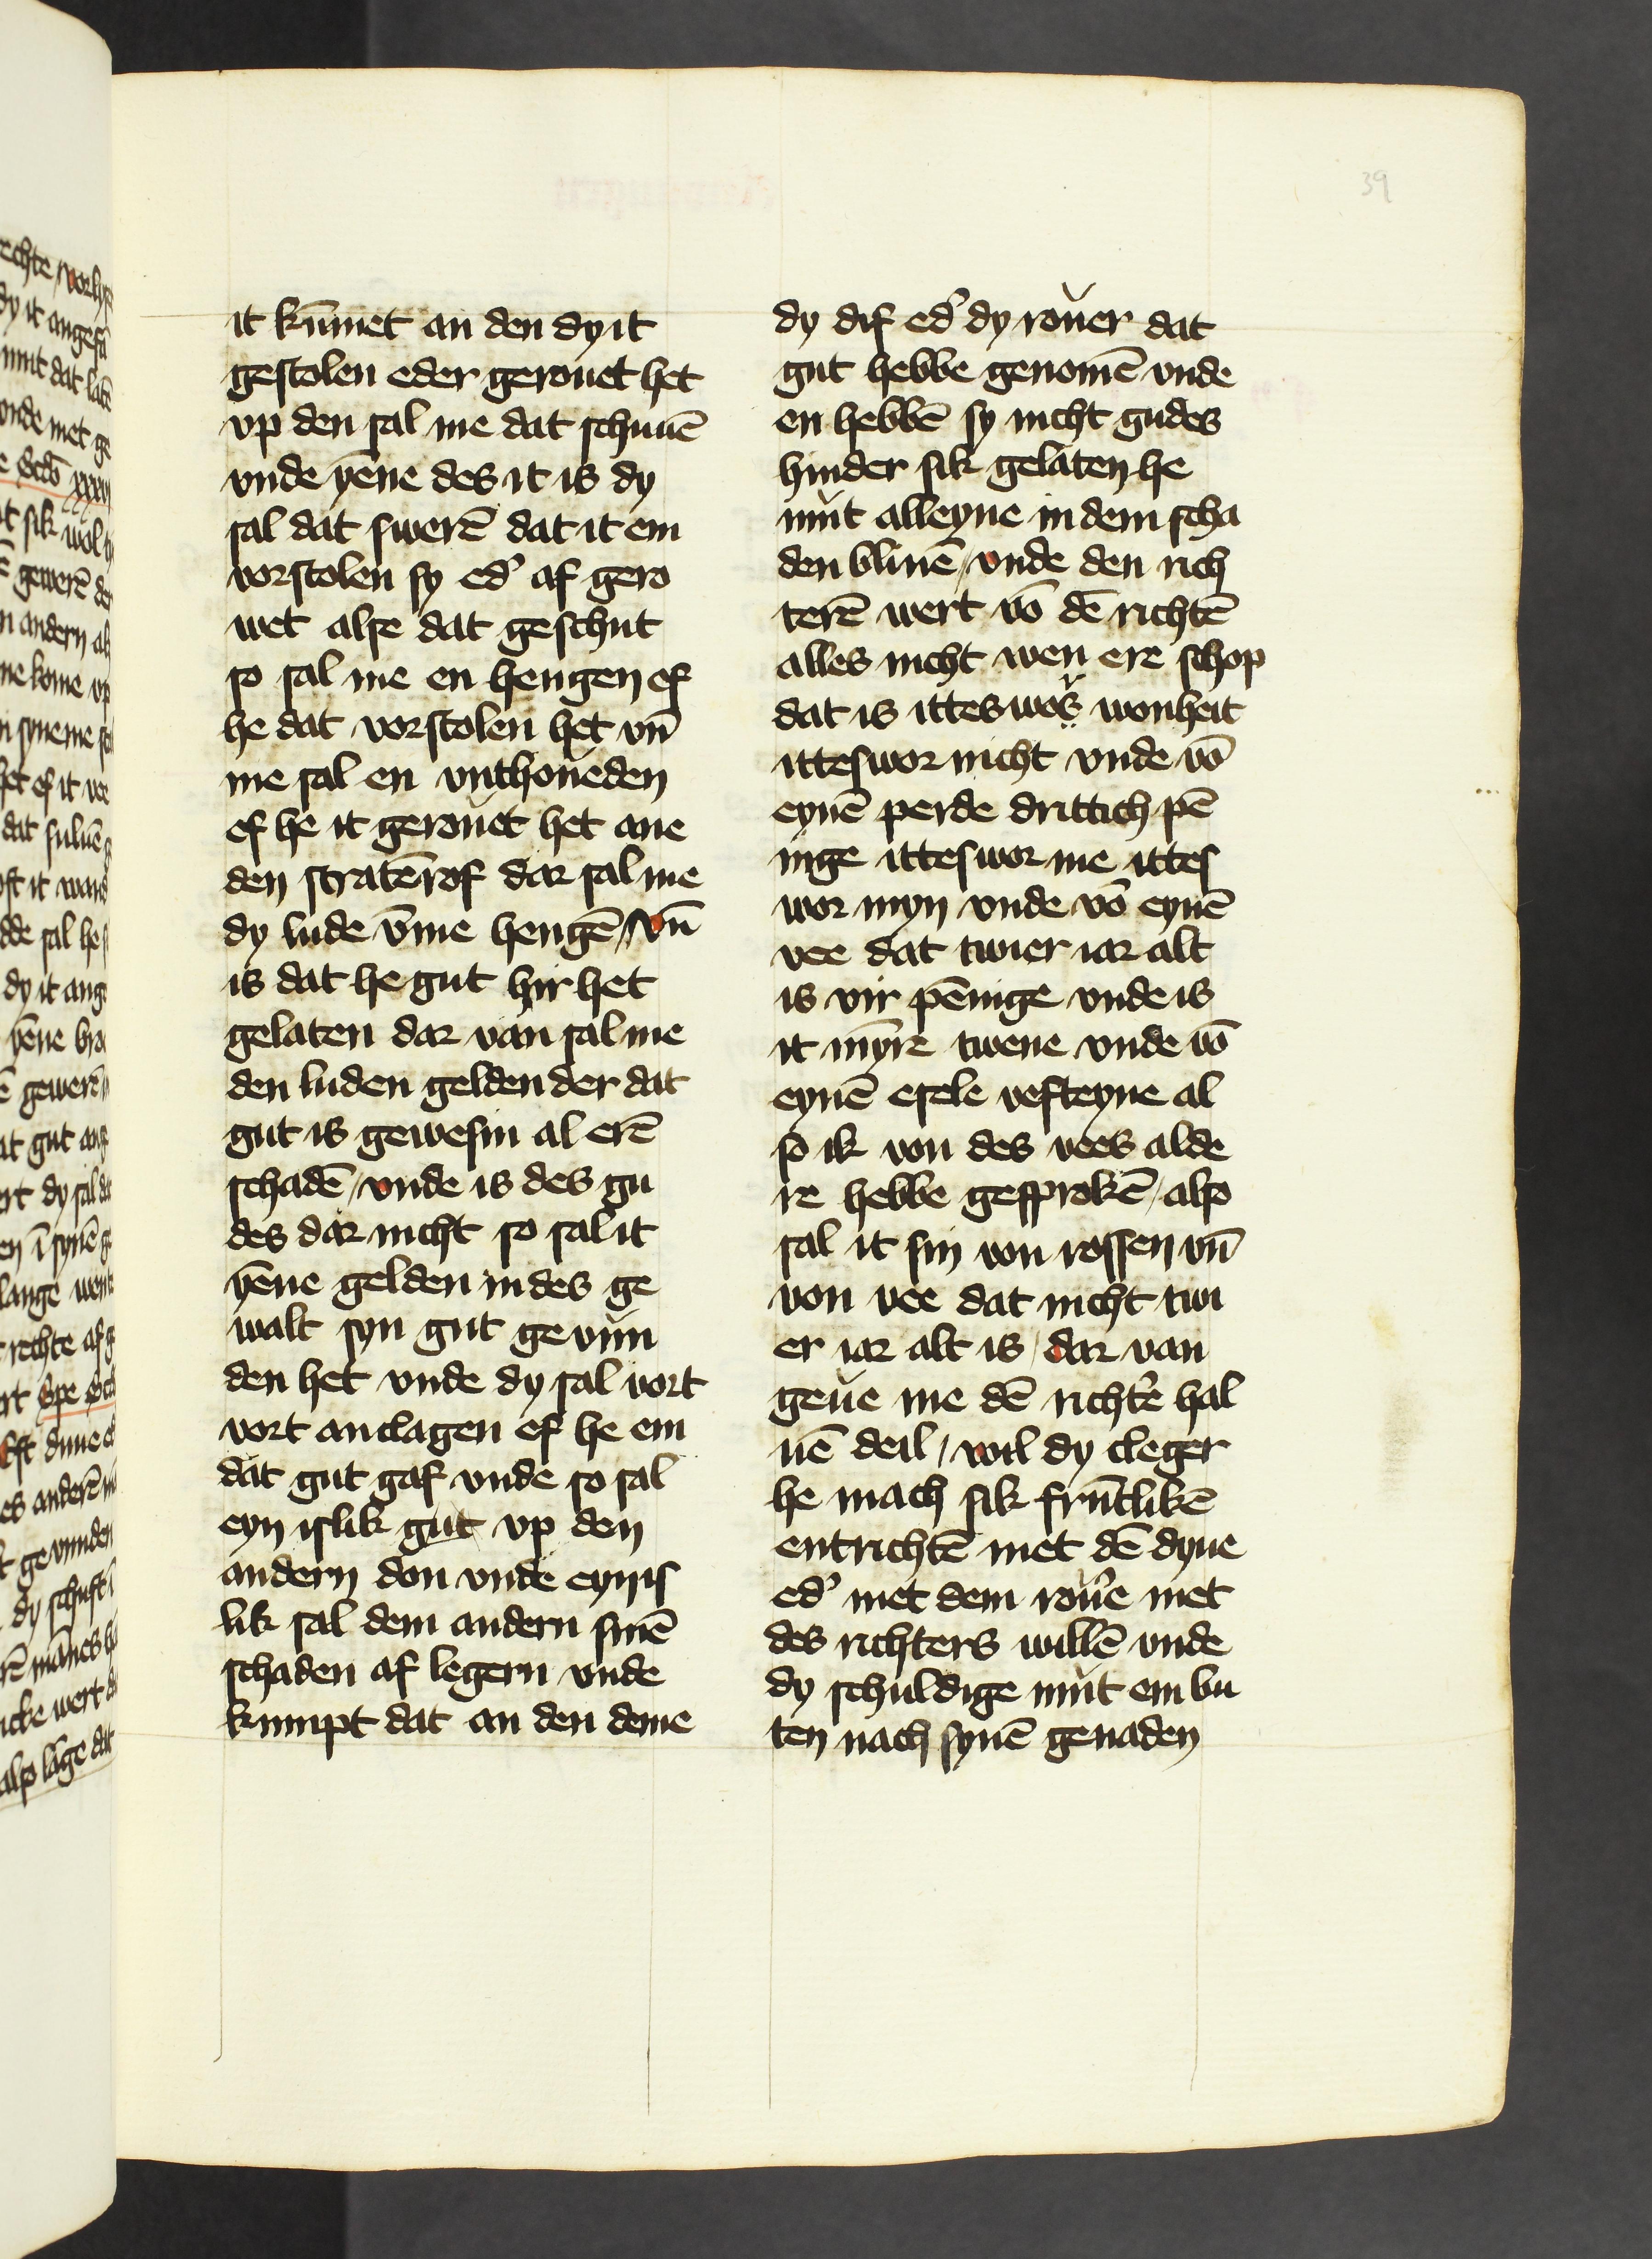 39
it kūmet an den dy it
gestolen eder gerouet het
vp den sal me dat schuuē
vnde yēne des it is dy
sal dat swerē dat it em
vorstolen sy ed' af gero
wet alse dat geschut
so sal me en hengen ef
he dat vorstolen het vn̄
me sal en vnthoueden
ef he it gerouet het ane
den stratērof dar sal me
dy lude v̄me hengē / vn̄
is dat he gut hir het
gelaten dar van sal me
den luden gelden der dat
gut is gewesin al erē
schadē / vnde is des gu
des dar nicht so sal it
yēne gelden in des ge
walt syn gut ge vun
den het vnde dy sal vort
vort anclagen ef he em
dat gut gaf vnde so sal
eyn islik gut vp den
andern don vnde eyn is
lik sal dem andern sinē
schaden af legern vnde
kumpt dat an den deme
dy dif ed' dy rouer dat
gut hebbe genomē vnde
en hebbē sy nicht gudes
hinder sik gelaten he
mut alleyne in dem scha
den bliuē / vnde den rich
terē wert vō dē richtē
alles nicht wen ere schop
dat is ittes wes wonheit
itteswor nicht vnde vō
eynē perde drittich pē
inge itteswor me ittes
wor myn vnde vō eynē
vee dat twier iar alt
is vir pēninge vnde is
it m̄yre twene vnde vō
eynē esele vefteyne al
so ik von des vees alde
re hebbe gesprokē / also
sal it sin von rossen vn̄
von vee dat nicht twi
er iar alt is / dar van
geue me dē richt'e hal
uē deil / wil dy cleger
he mach sik frūtlikē
entrichtē met dē dyue
ed' met dem rou'e met
des richters willē vnde
dy schuldige mut em bu
ten nach synē genaden